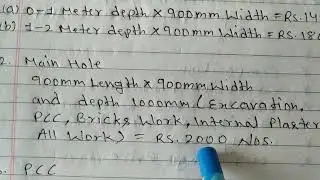 (a) 0-1 Meter depth x 900mm Width = Rs. 14
(b) 1-2 Meter depth x 900mm Width = Rs. 180
2. Main Hole
900mm Length x 900mm Width
and depth 1000mm (Excavation,
PCC, Bricks Work, Internal Plaster
All Work) = Rs. 2000 Nos.
PCC